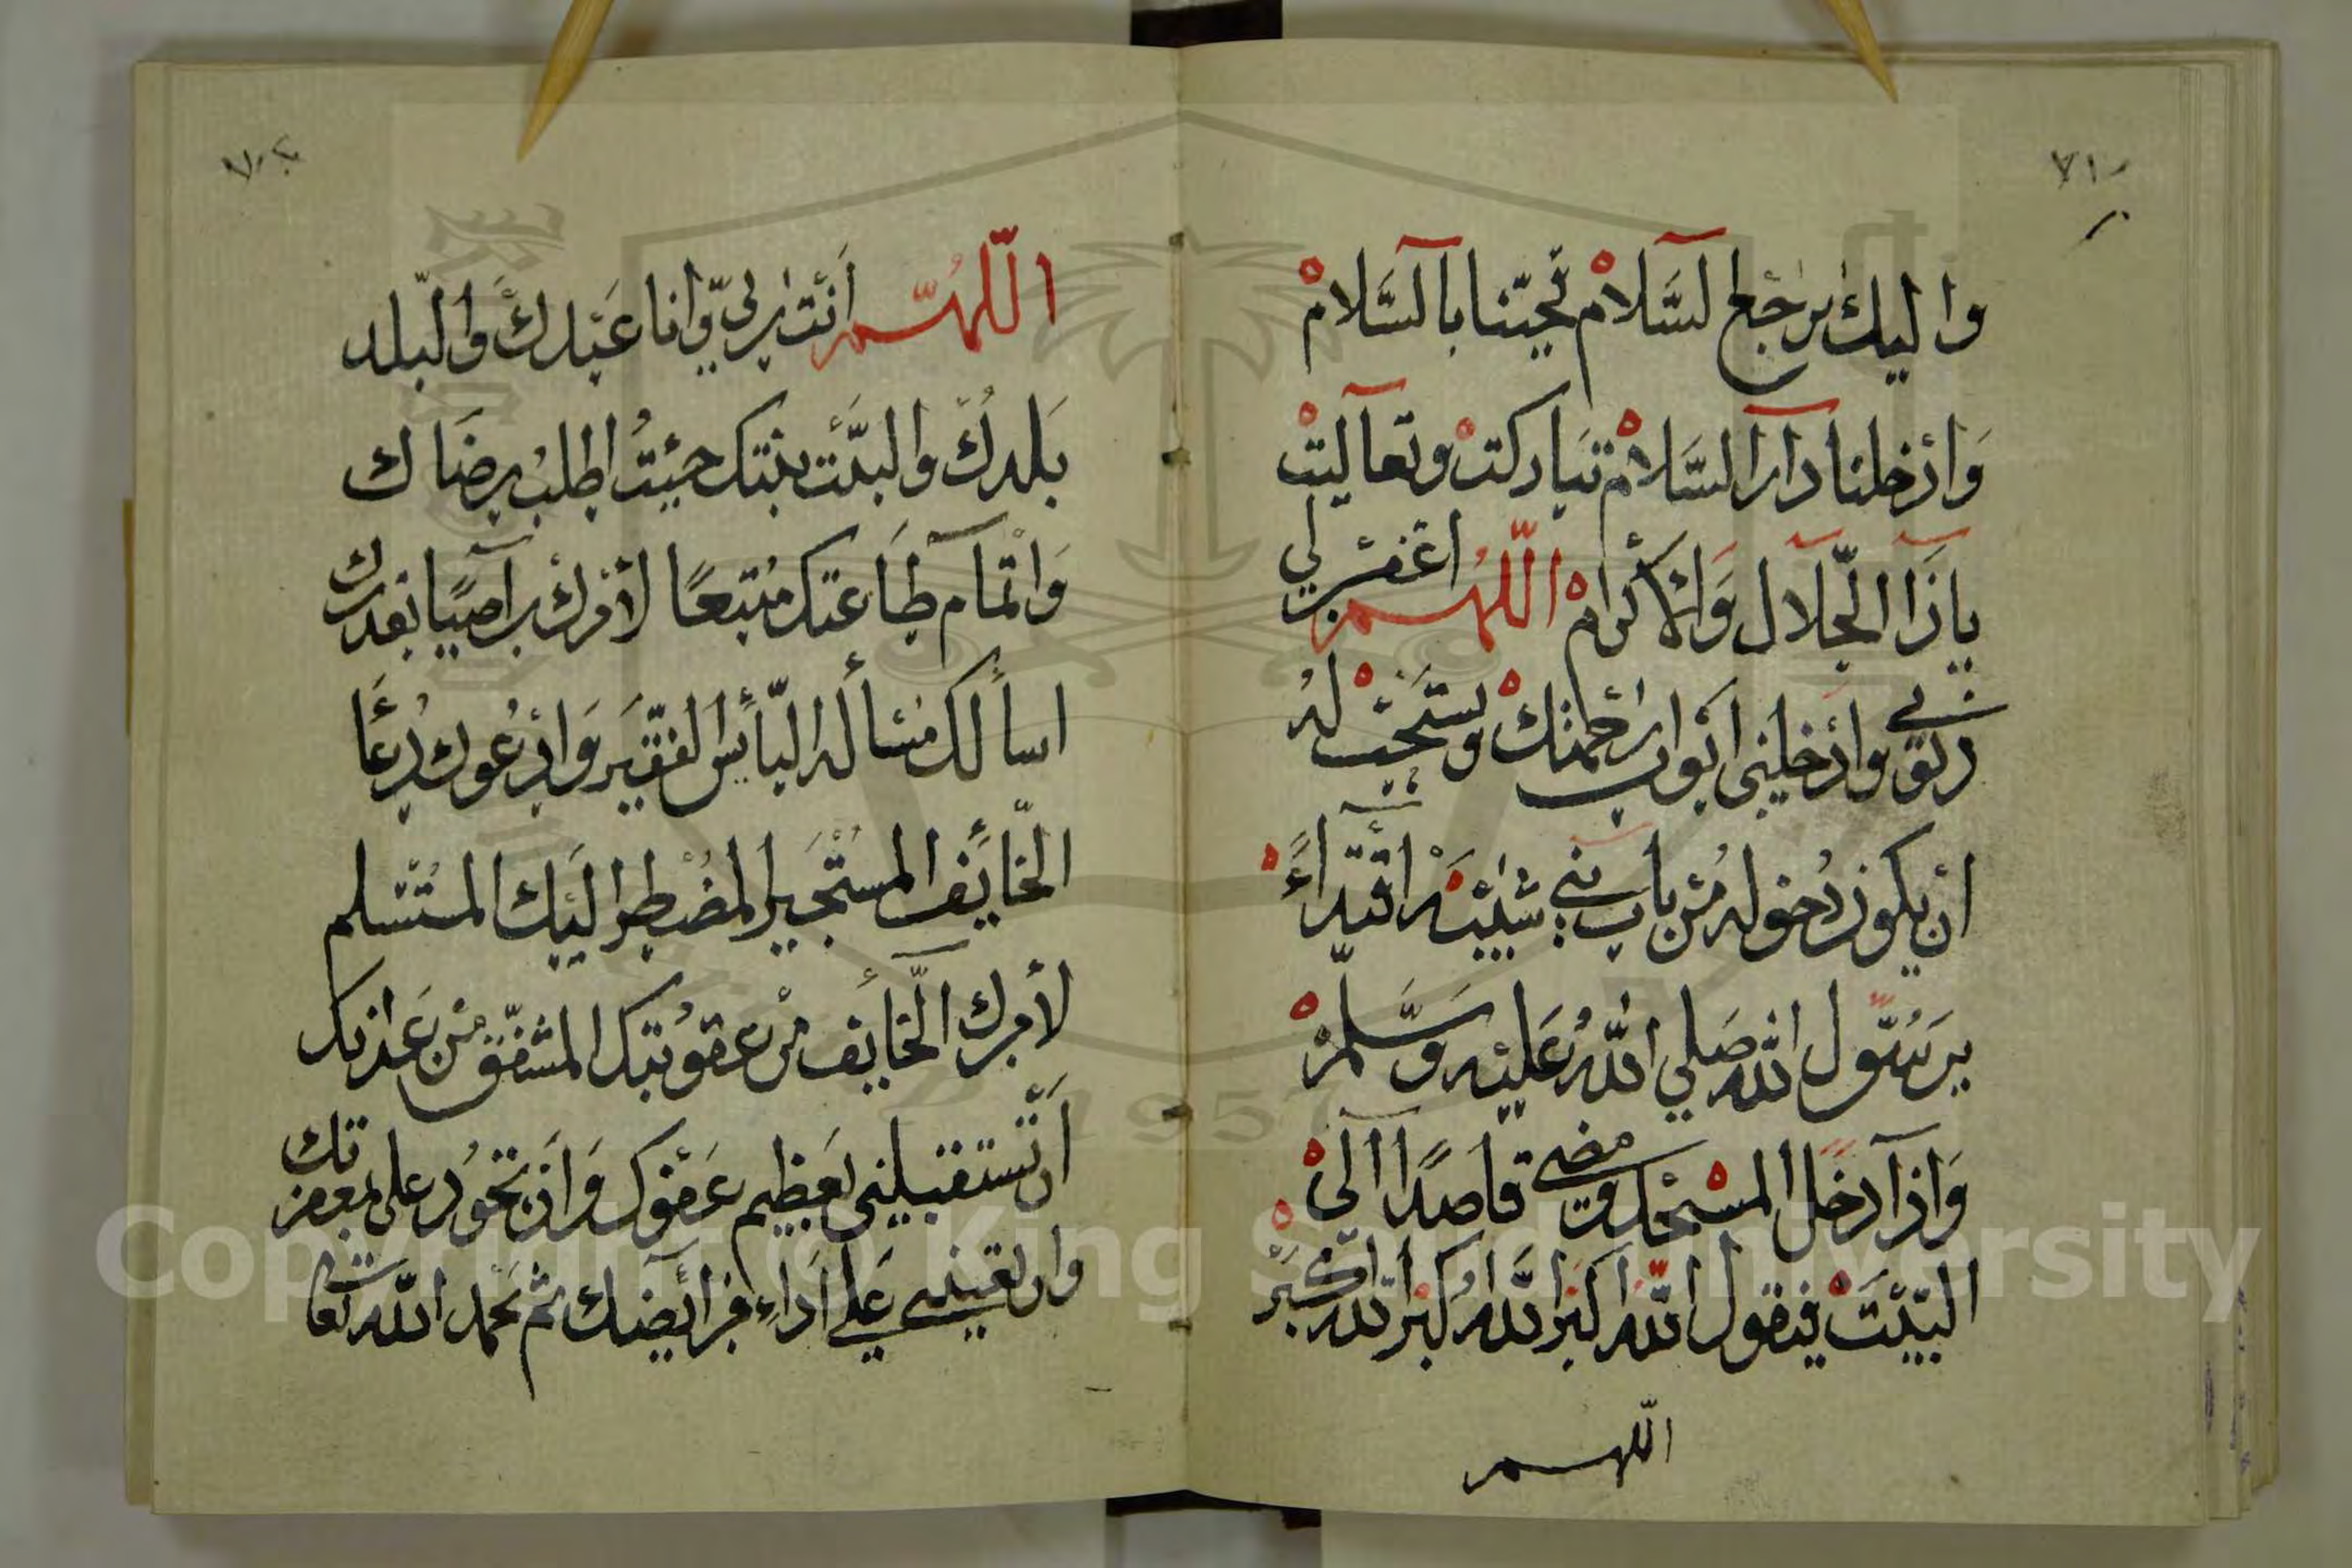 واليك يرجع السلام تحيّنا بالسّلام
وَادخلنا دار السّلام تباركت وتعاليت
ياذا الجّلال وَالاكرام اللهم اغفر لي
ذنوبي وادخلني ابواب رحمتك ويستحب له
ان يكون دخوله من باب بني شيبه اقتداءً
برسول الله صَلي اللهُ عَليه وَسَلّم
وَاذا دخل المسجد ومضى قاصدًا الى
البيت فيقول الله اكبر الله اكبر الله اكبر
اللهم
اللهم أنت ربي وانا عبدك والبلد
بَلدك والبيت بيتك جيئتُ اطلب رضاك
وَاتمام طاعتك متبعًا لامرك راضيًا بقدرك
اسألك مسألة البأيس الفقير وَادعوك دعَا
الخّايف المستجير المضطر اليك المستسلم
لأمرك الخّايف من عقوبتك المشفق من عَذابك
ان تستقبلني بعَظيم عَفوك وَان تجود على بمغفرتك
وان تعينني عَلي اداء فرايضك ثم يحمد الله تعالى
Copyright © King Saud University
1957